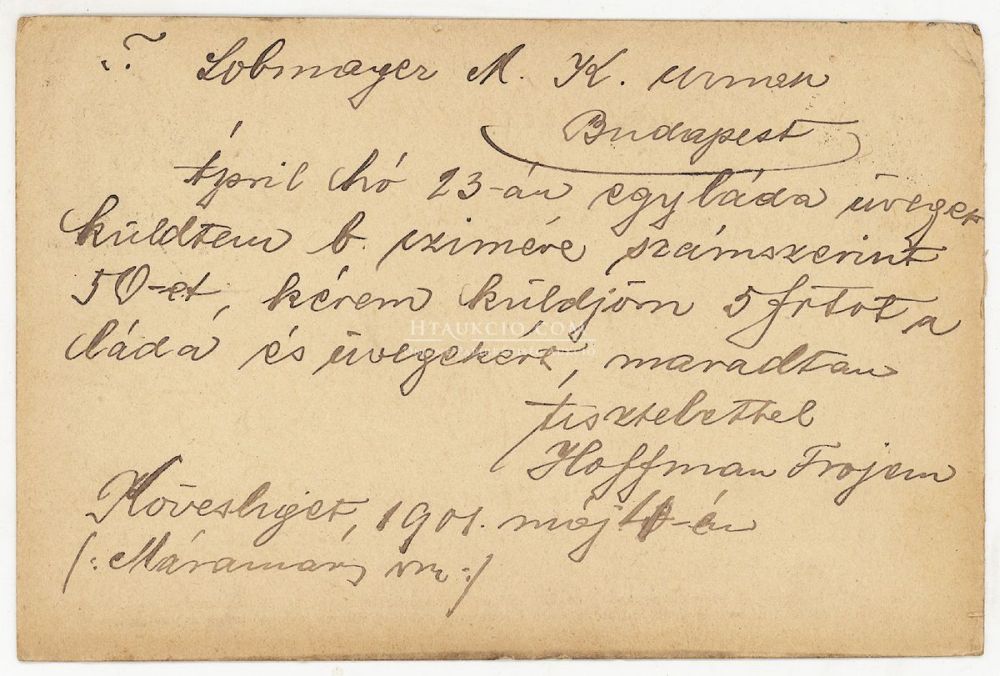 T. Lobmayer M. K. urnen
Budapest
Ápril hó 23-án egy láda üveget
küldtem b. czimére számszerint
50-et, kérem küldjön 5 frtot a
láda és üvegekért, maradtan
tisztelettel
Hoffman Frojem
Kövesliget, 1901. máj. -én
(: Máramaros vm :)
HTAUKCIO.COM